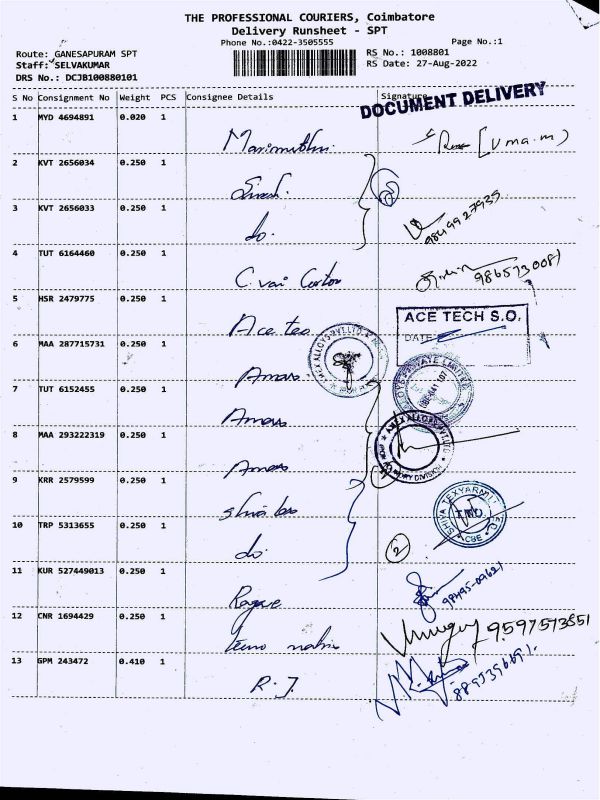 THE PROFESSIONAL COURIERS, Coimbatore
Delivery Runsheet - SPT
Phone No.:0422-3505555
Page No.:1
Route: GANESAPURAM SPT
RS No.: 1008801
Staff: SELVAKUMAR
RS Date: 27-Aug-2022
DRS No.: DCJB100880101
S No Consignment No Weight PCS Consignee Details Signature
DOCUMENT DELIVERY
1 MYD 4694891 0.020 1 (Uma.m)
2 KVT 2656034 0.250 1
3 KVT 2656033 0.250 1 do. 9849927935
4 TUT 6164460 0.250 1 C. vai 9865730081
5 HSR 2479775 0.250 1 Ace tea
ACE TECH S.O.
DATE
6 MAA 287715731 0.250 1 Amars
7 TUT 6152455 0.250 1 Amars
8 MAA 293222319 0.250 1 Amars
9 KRR 2579599 0.250 1
SHIVA TEXYARN LIMITED
CBE
10 TRP 5313655 0.250 1 do. 2
11 KUR 527449013 0.250 1 98495-09621
12 CNR 1694429 0.250 1 9597573851
13 GPM 243472 0.410 1 R. J.